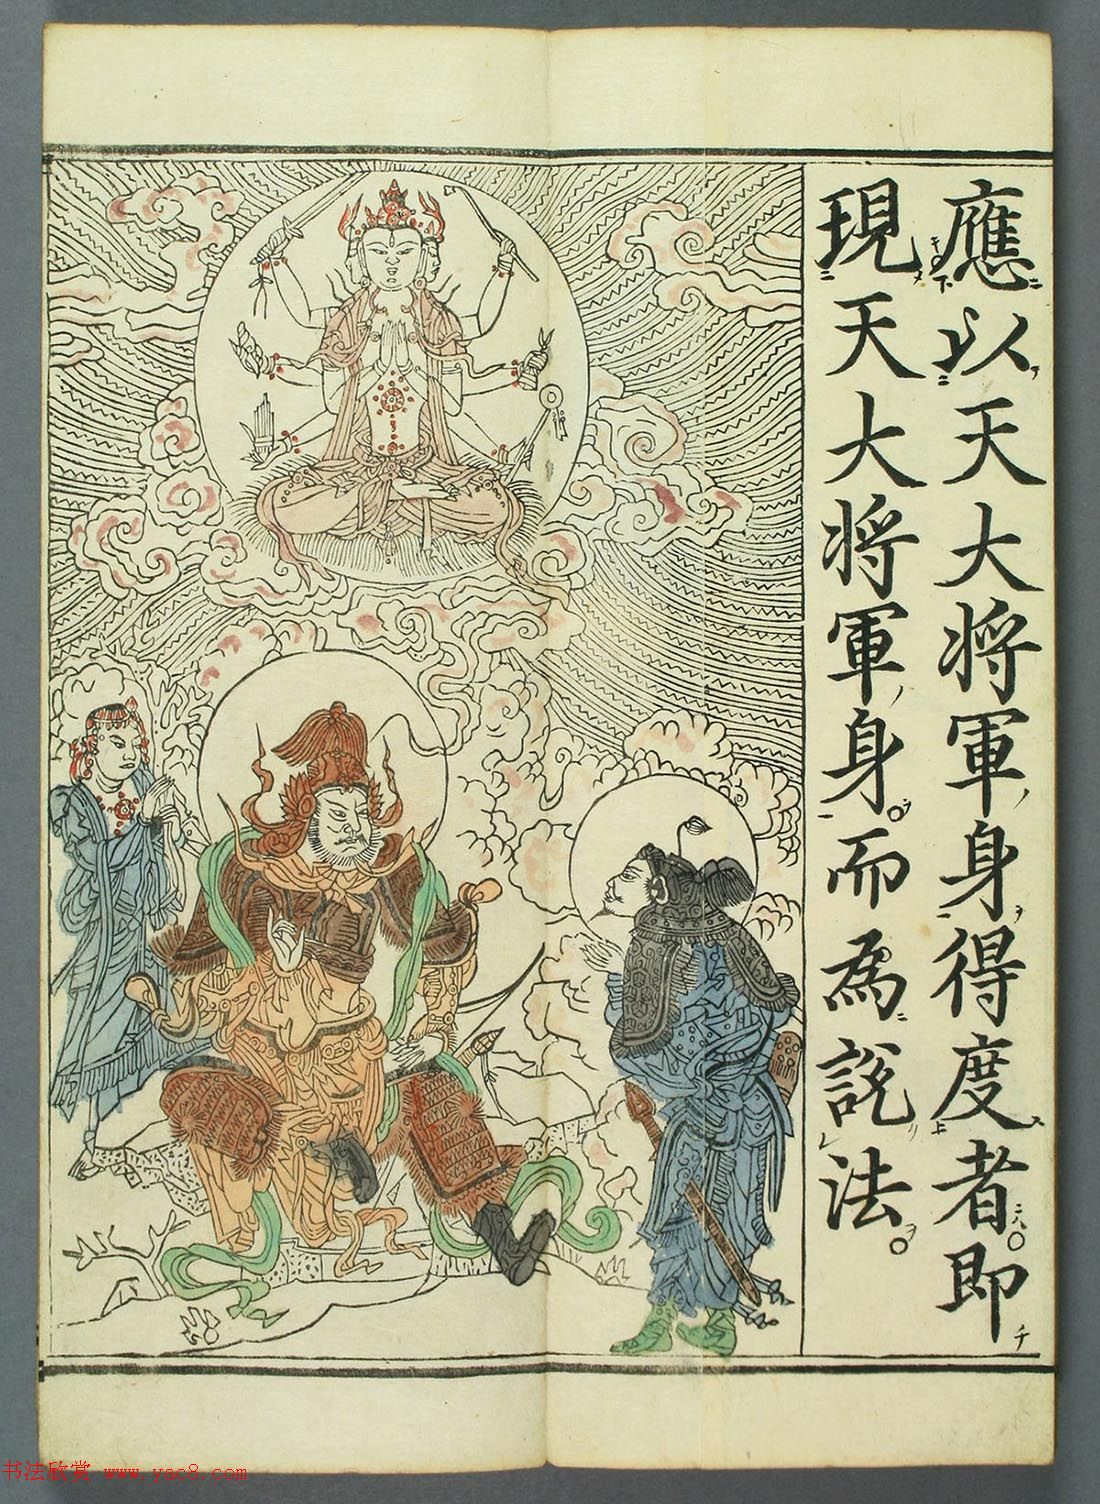 應以天大將軍身得度者。即
現天大將軍身。而為說法。
书法欣赏 www.yac8.com